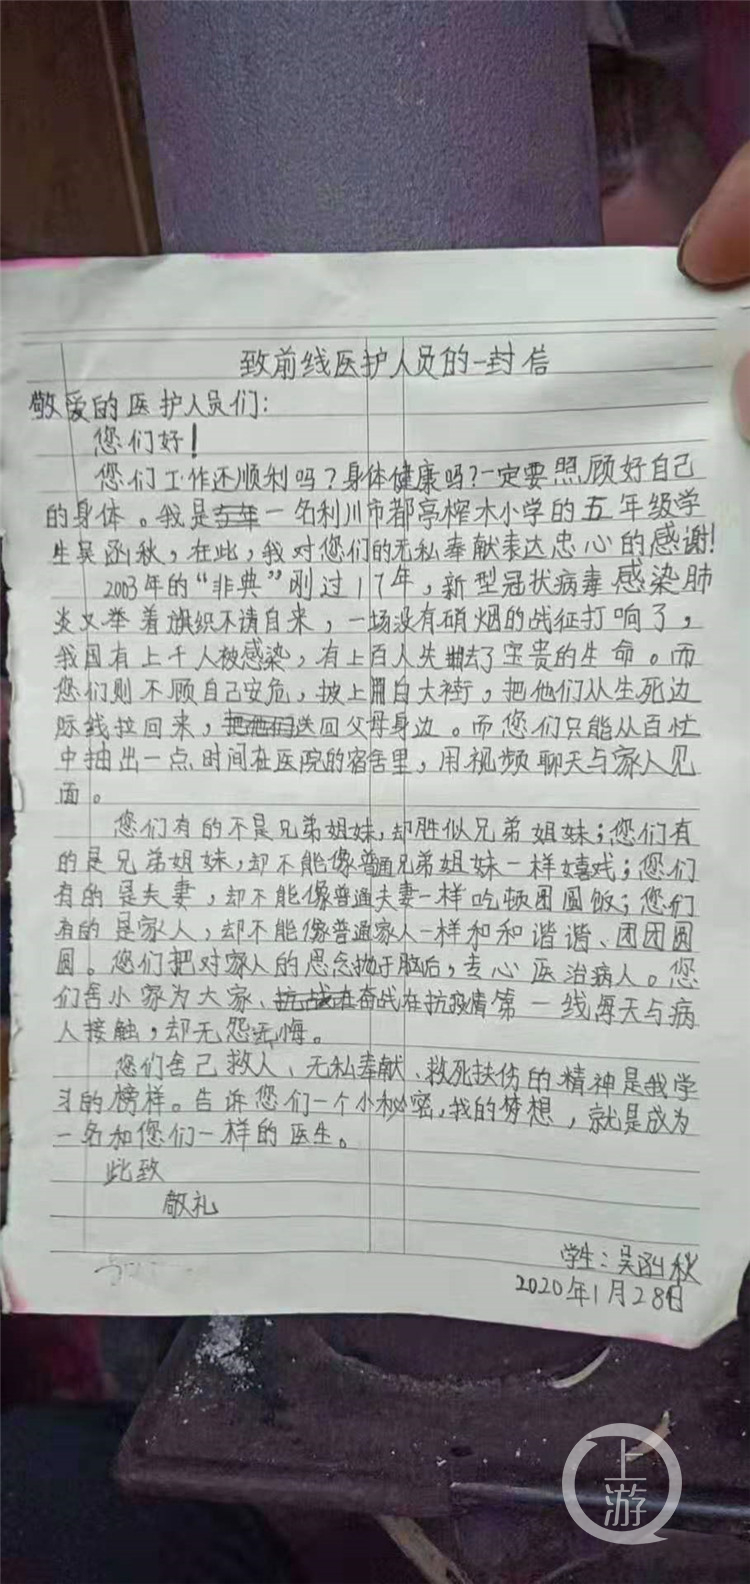 致前线医护人员的一封信
敬爱的医护人员们：
您们好！
您们工作还顺利吗？身体健康吗？一定要照顾好自己
的身体。我是一名利川市都亭榨木小学的五年级学
生吴函秋，在此，我对您们的无私奉献表达忠心的感谢！
2003年的“非典”刚过17年，新型冠状病毒感染肺
炎又举着旗织不请自来，一场没有硝烟的战征打响了，
我国有上千人被感染，有上百人失去了宝贵的生命。而
您们则不顾自己安危，披上白大褂，把他们从生死边
际线拉回来，送回父母身边。而您们只能从百忙
中抽出一点时间在医院的宿舍里，用视频聊天与家人见
面。
您们有的不是兄弟姐妹，却胜似兄弟姐妹；您们有
的是兄弟姐妹，却不能像普通兄弟姐妹一样嬉戏；您们
有的是夫妻，却不能像普通夫妻一样吃顿团圆饭；您们
有的是家人，却不能像普通家人一样和和谐谐、团团圆
圆。您们把对家人的思念抛于脑后，专心医治病人。您
们舍小家为大家、奋战在抗疫情第一线每天与病
人接触，却无怨无悔。
您们舍己救人、无私奉献、救死扶伤的精神是我学
习的榜样。告诉您们一个小秘密，我的梦想，就是成为
一名和您们一样的医生。
此致
敬礼
学生：吴函秋
2020年1月28日
上游